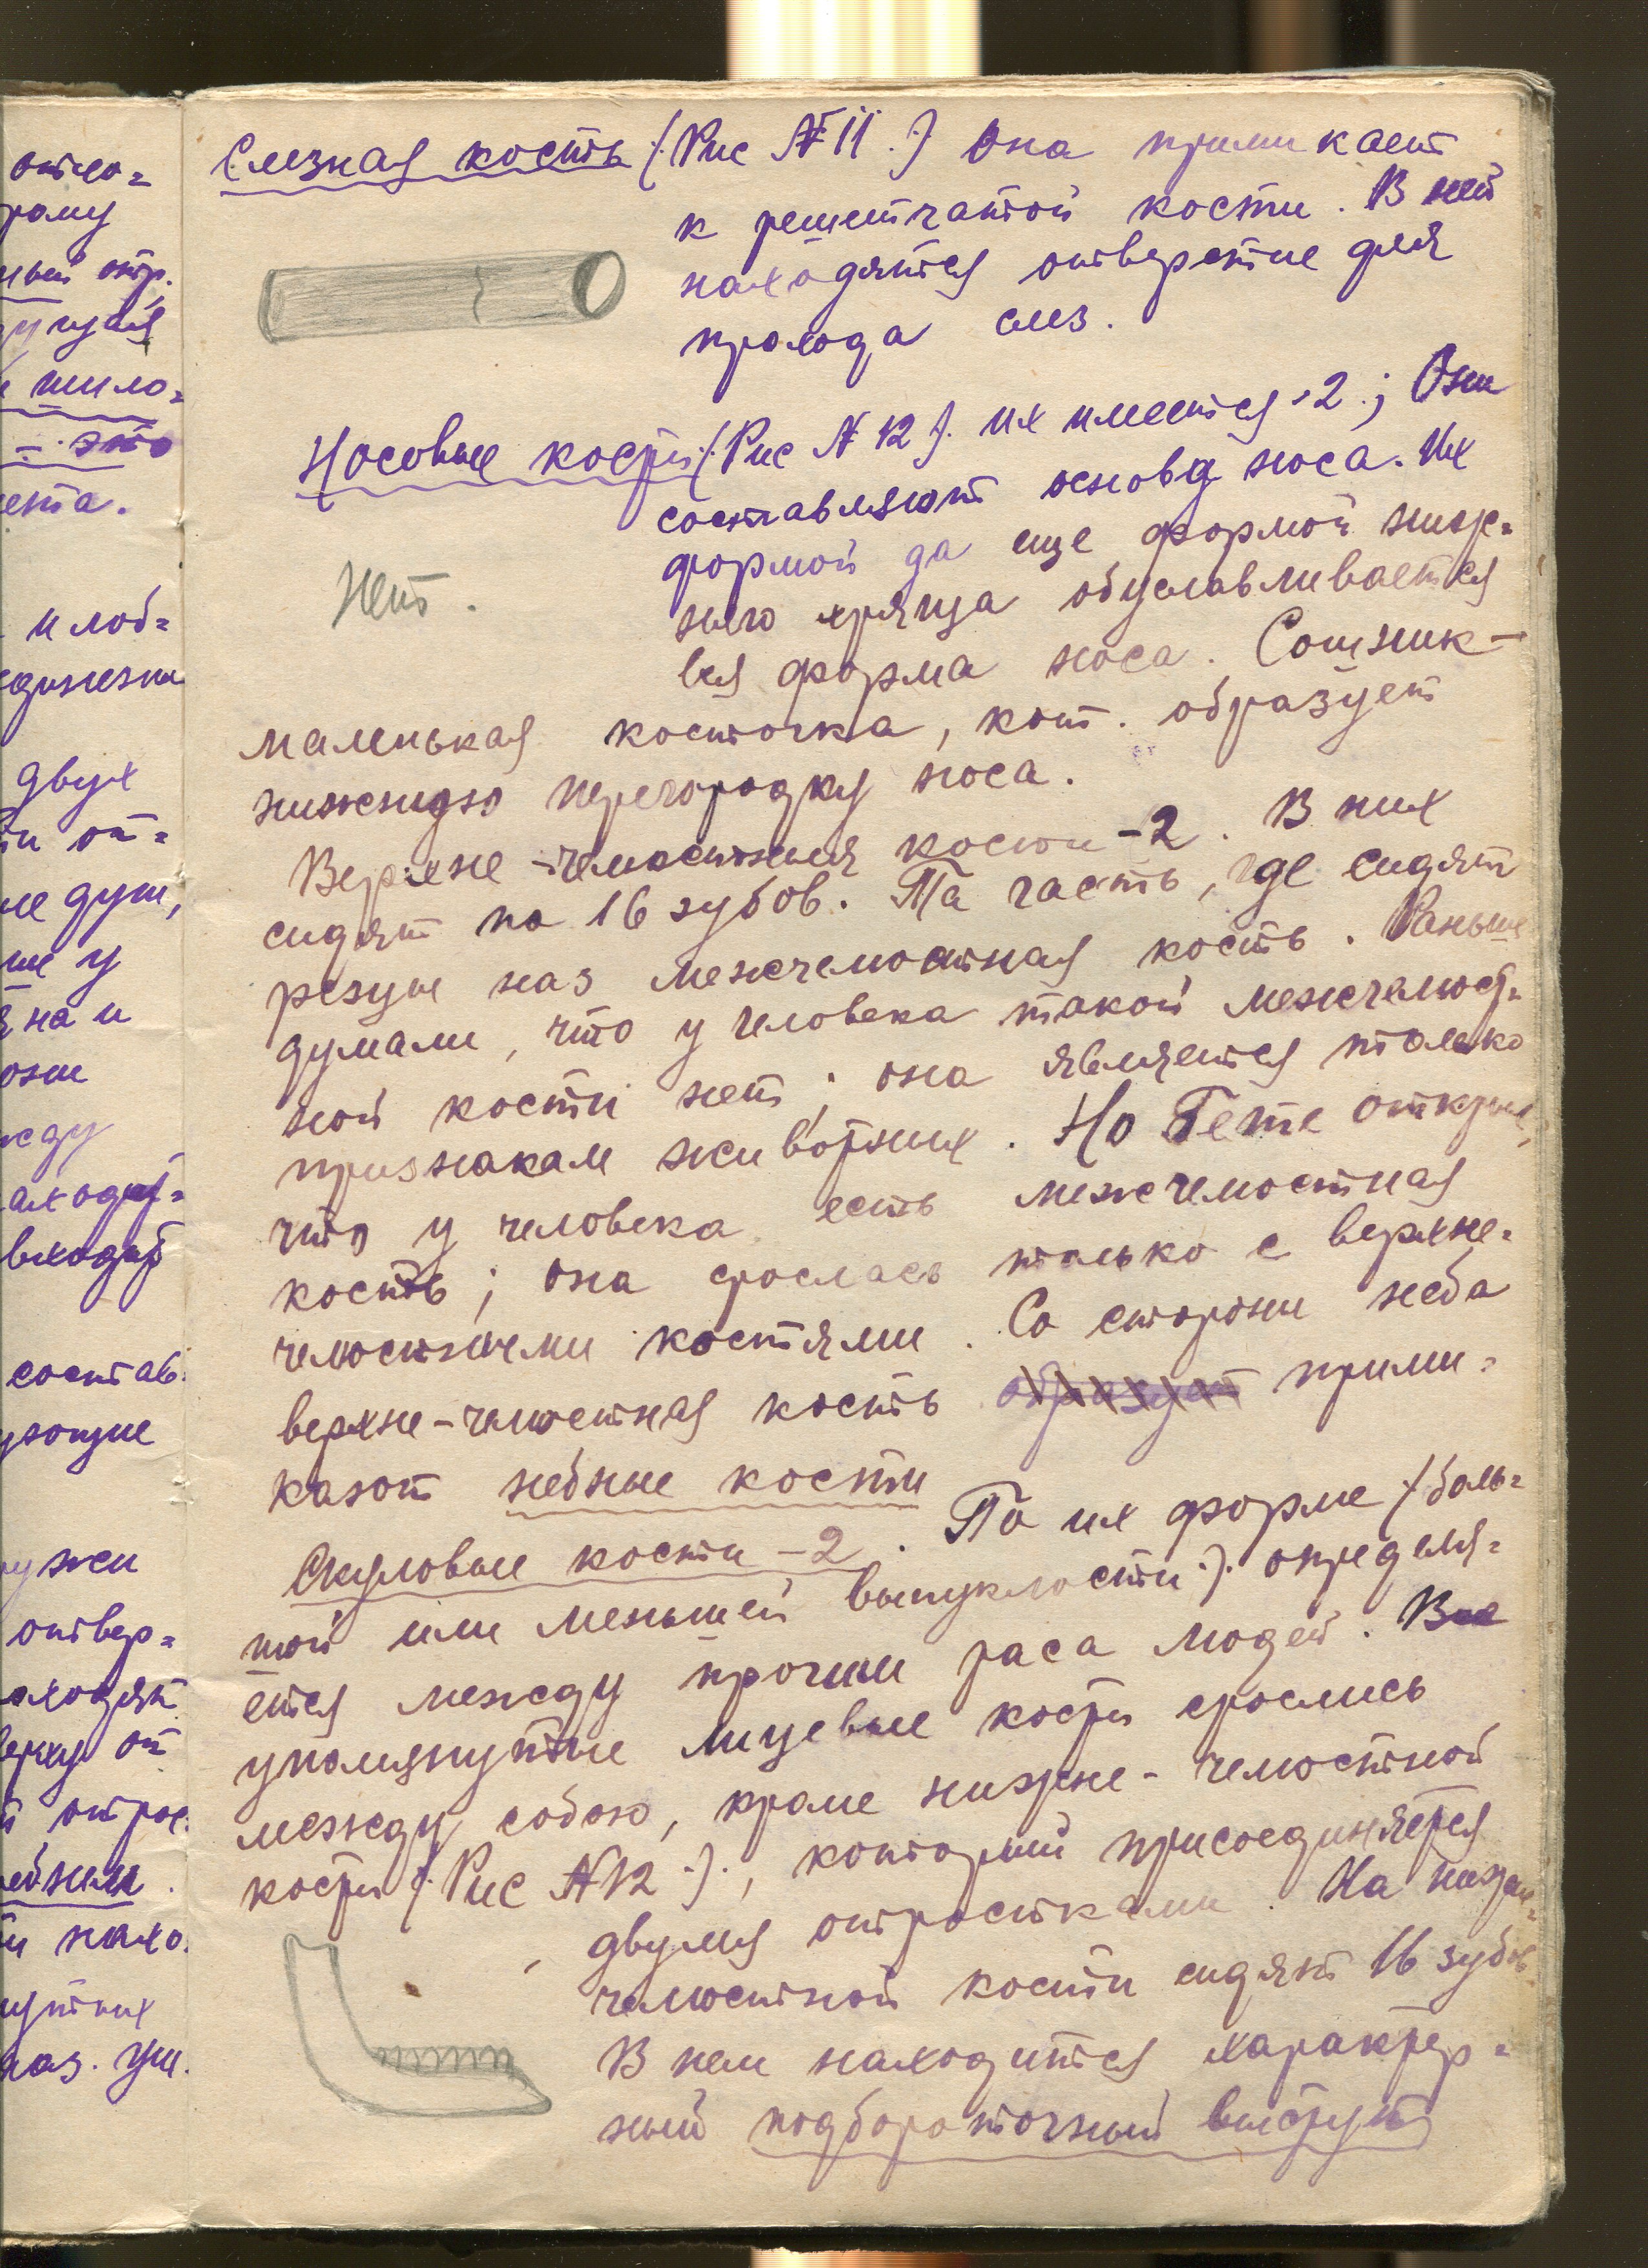 отло=
рому
ный отр.
шило=
- это
ента.
и лоб=
двух
ти от=
ие душ,
ше у
на и
они
жду
аходит=
входит
состав.
ующие
ужи
отвер=
аходят
ерху от
й отрос.
ейным.
и нахо.
аз. уш.
Слезная кость (Рис № 11.) Она примикает
к решетчатой кости. В ней
находятся отверстие для
прохода слез.
Носовые кости (Рис № 12). их имеется 2.; Они
составляют основу носа. Их
формой да еще формой ниж=
него хряща обуславливается
вся форма носа. Сошник -
Нет.
маленькая косточка, кот. образует
нижнюю перегородку носа.
Верхне-челюстныя кости - 2. В них
сидят по 16 зубов. Та часть, где сидят
резцы наз межчелюстная кость. Раньше
думали, что у человека такой межчелюст=
ной кости нет; она является только
признакам животных. Но Гете открыл,
что у человека есть межчелюстная
кость; она срослась только с верхне=
челюстными костями. Со стороны неба
верхне-челюстная кость образует прими=
кают небные кости
Скуловые кости - 2. По их форме (боль=
шой или меньшей выпуклости). определя=
ется между прочим раса людей. Все
упомянутые лицевые кости срослись
между собою, кроме нижне-челюстной
кости (Рис № 12.)., который присоединяется
двумя отростками. На нижне=
челюстной кости сидят 16 зубов
В нем находится характер=
ный подбороточный выступ